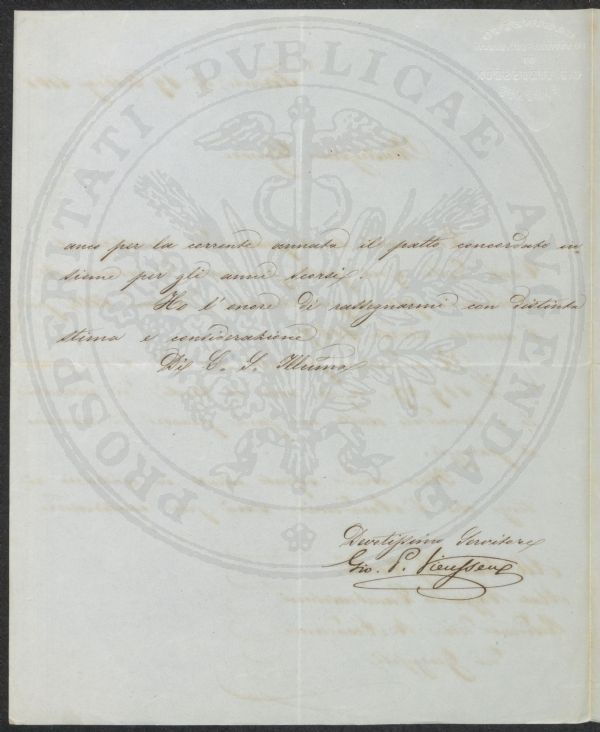 PROSPERITATI PVBLICAE AVGENDAE
anco per la corrente annata il patto concordato in-
sieme per gli anni scorsi.
Ho l'onore di rassegnarmi con distinta
stima e considerazione
Di C. S. Illuma
Devotissimo Servitore
Gio. P. Vieusseux